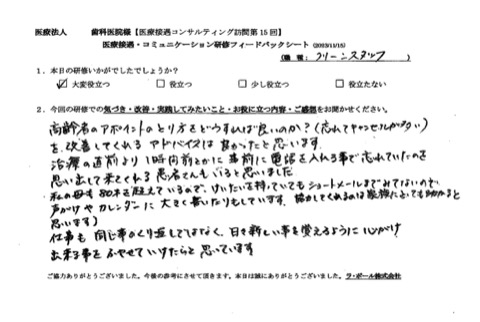 医療法人 歯科医院様【医療接遇コンサルティング訪問第15回】
医療接遇・コミュニケーション研修フィードバックシート (2023/11/15)
(職種: クリーンスタッフ)
1. 本日の研修いかがでしたでしょうか?
☑ 大変役立つ □ 役立つ □ 少し役立つ □ 役立たない
2. 今回の研修での気づき・改善・実践してみたいこと・お役に立つ内容・ご感想をお聞かせください。
高齢者のアポイントのとり方をどうすれば良いのか?(忘れてキャンセルが多い)
を、改善してくれるアドバイスは良かったと思います。
治療の直前より1時間前とかに事前に電話を入れる事で忘れていたのを
思い出して来てくれる患者さんもいると思いました。
私の母も80才を超えているので、けいたいを持っていてもショートメールまでみてないので、
声がけやカレンダーに大きく書いたりもしています。(協力してくれるのは家族にとっても助かると
思います)
仕事も同じ事のくり返しではなく、日々新しい事を覚えるように心がけ
出来る事をふやせていけたらと思っています
ご協力ありがとうございました。今後の参考にさせて頂きます。本日は誠にありがとうございました。ラ・ポール株式会社